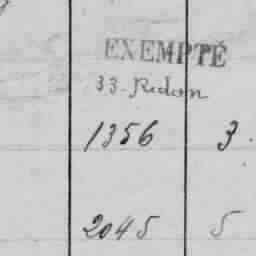 EXEMPTÉ
33 - Redon
1356 3.
2045 5